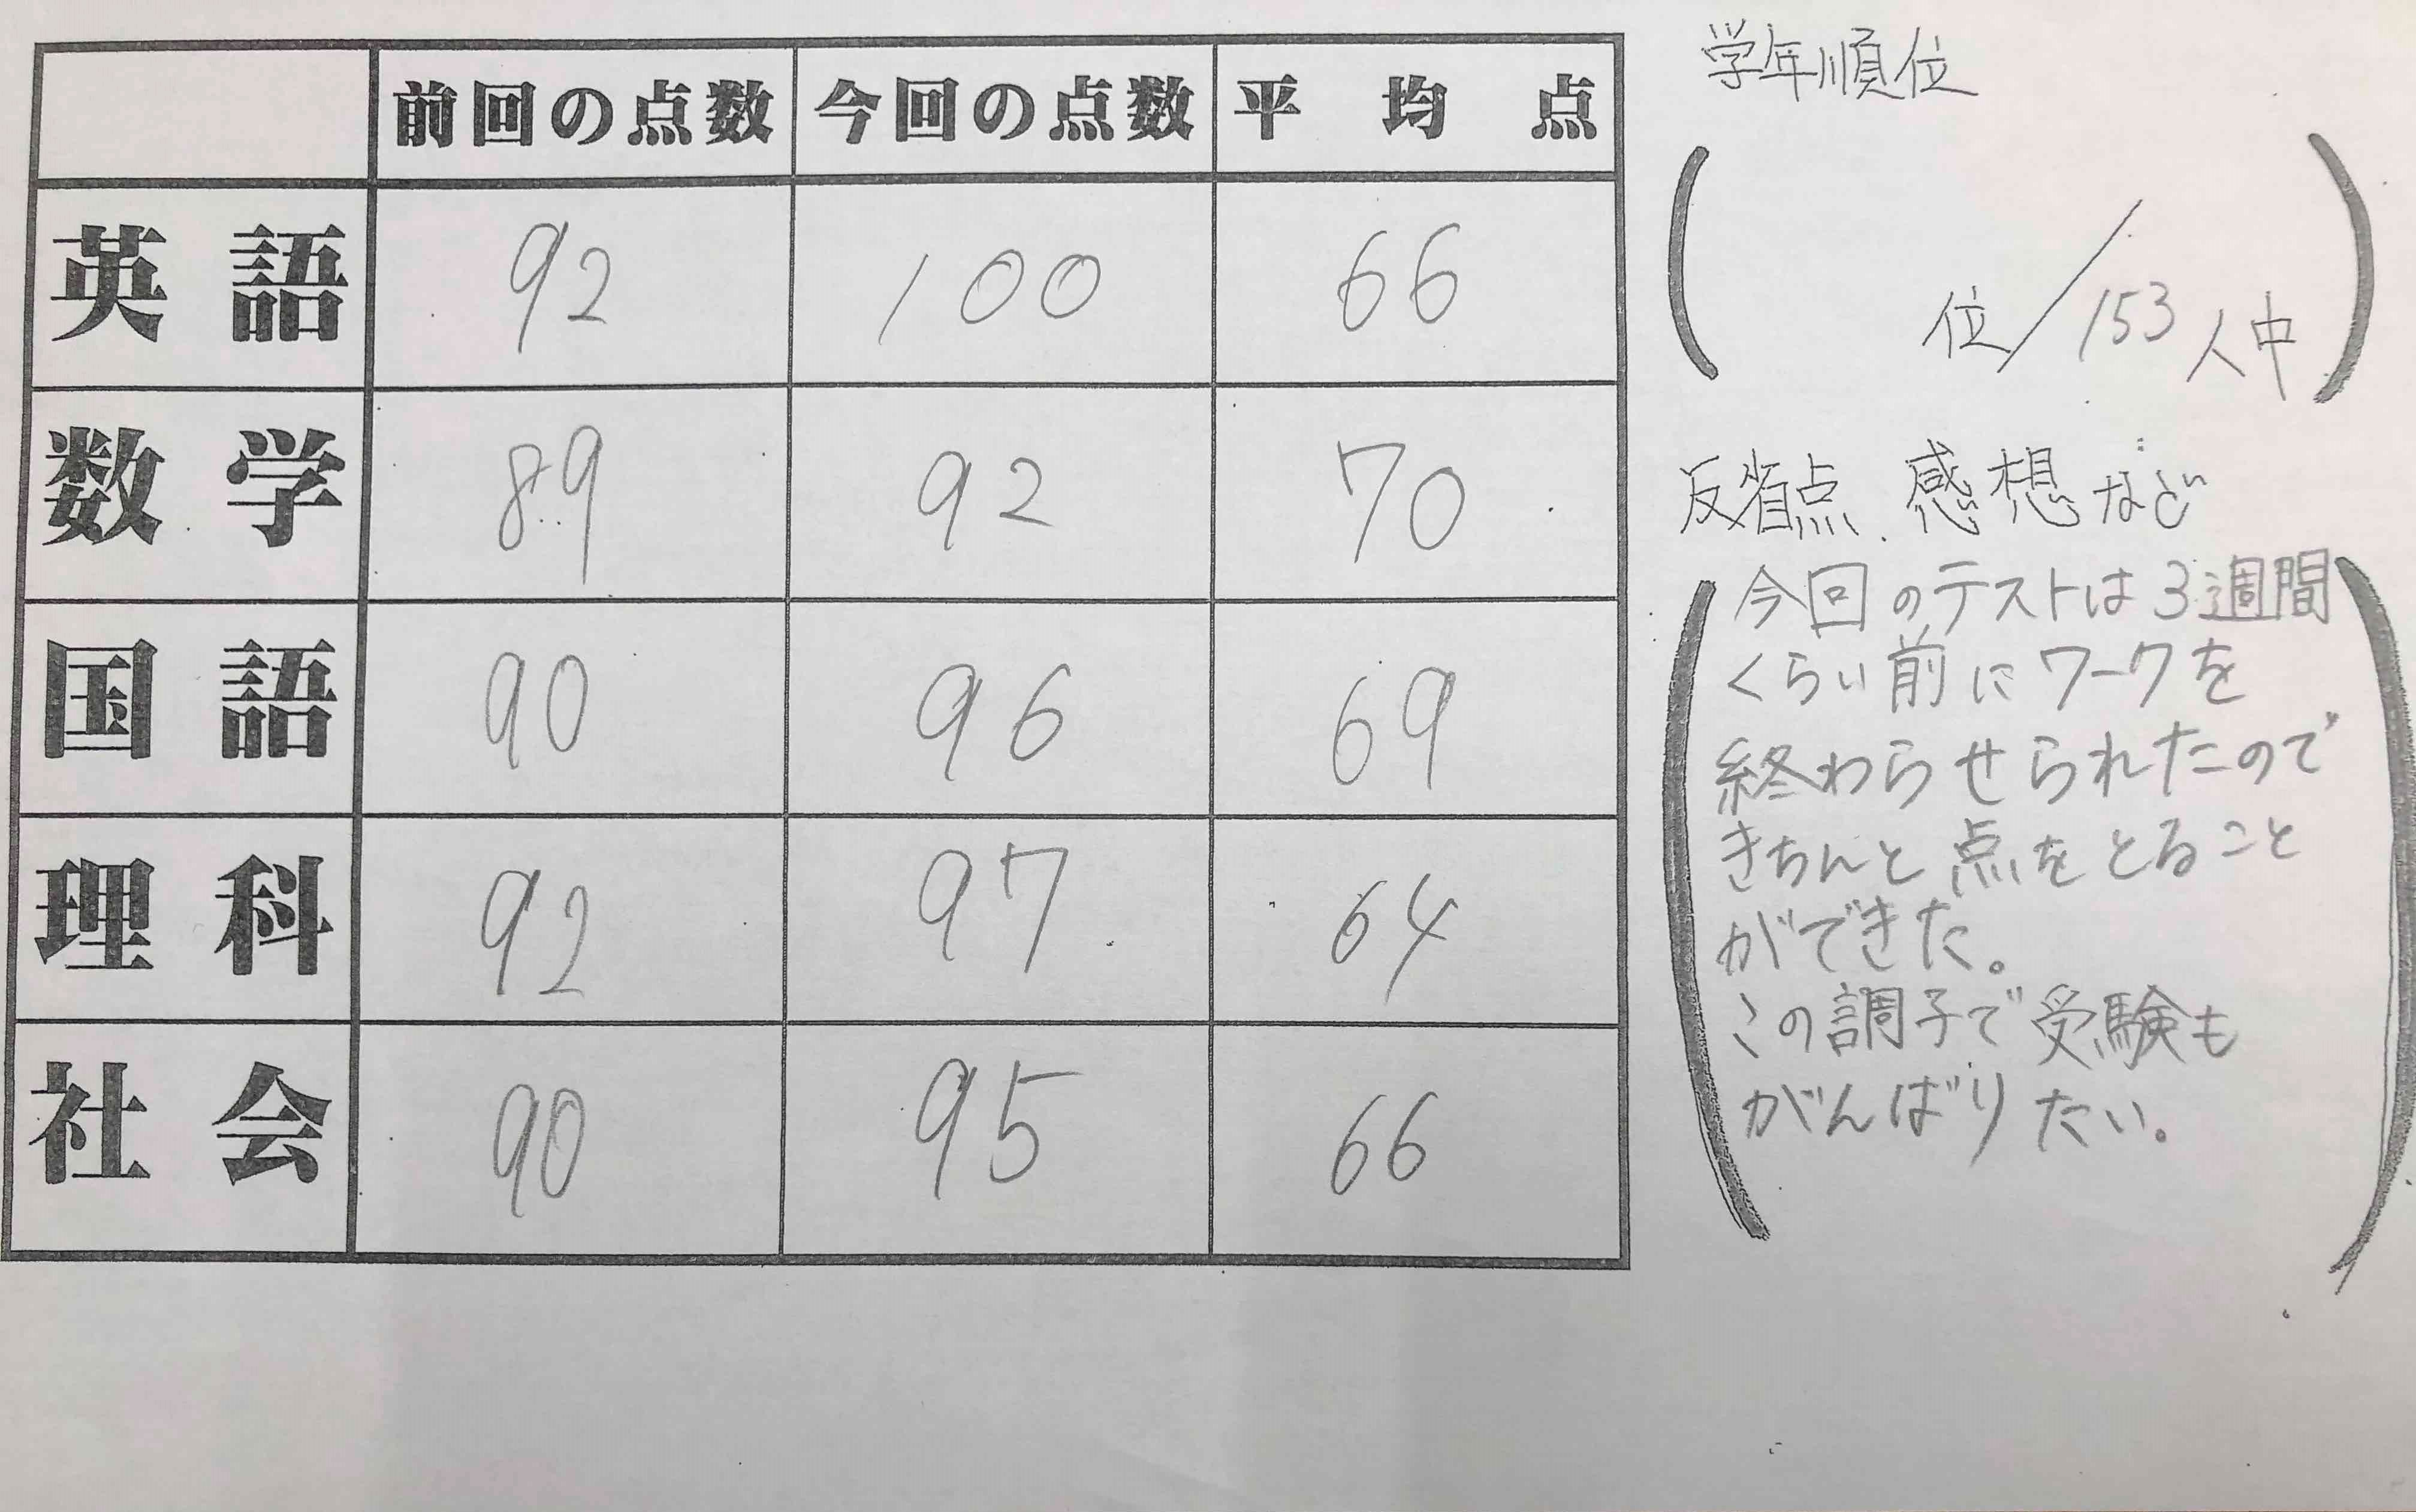 前回の点数 今回の点数 平均点
英語 92 100 66
数学 89 92 70
国語 90 96 69
理科 92 97 64
社会 90 95 66
学年順位
( 位/153人中 )
反省点、感想など
今回のテストは3週間
くらい前にワークを
終わらせられたので
きちんと点をとること
ができた。
この調子で受験も
がんばりたい。